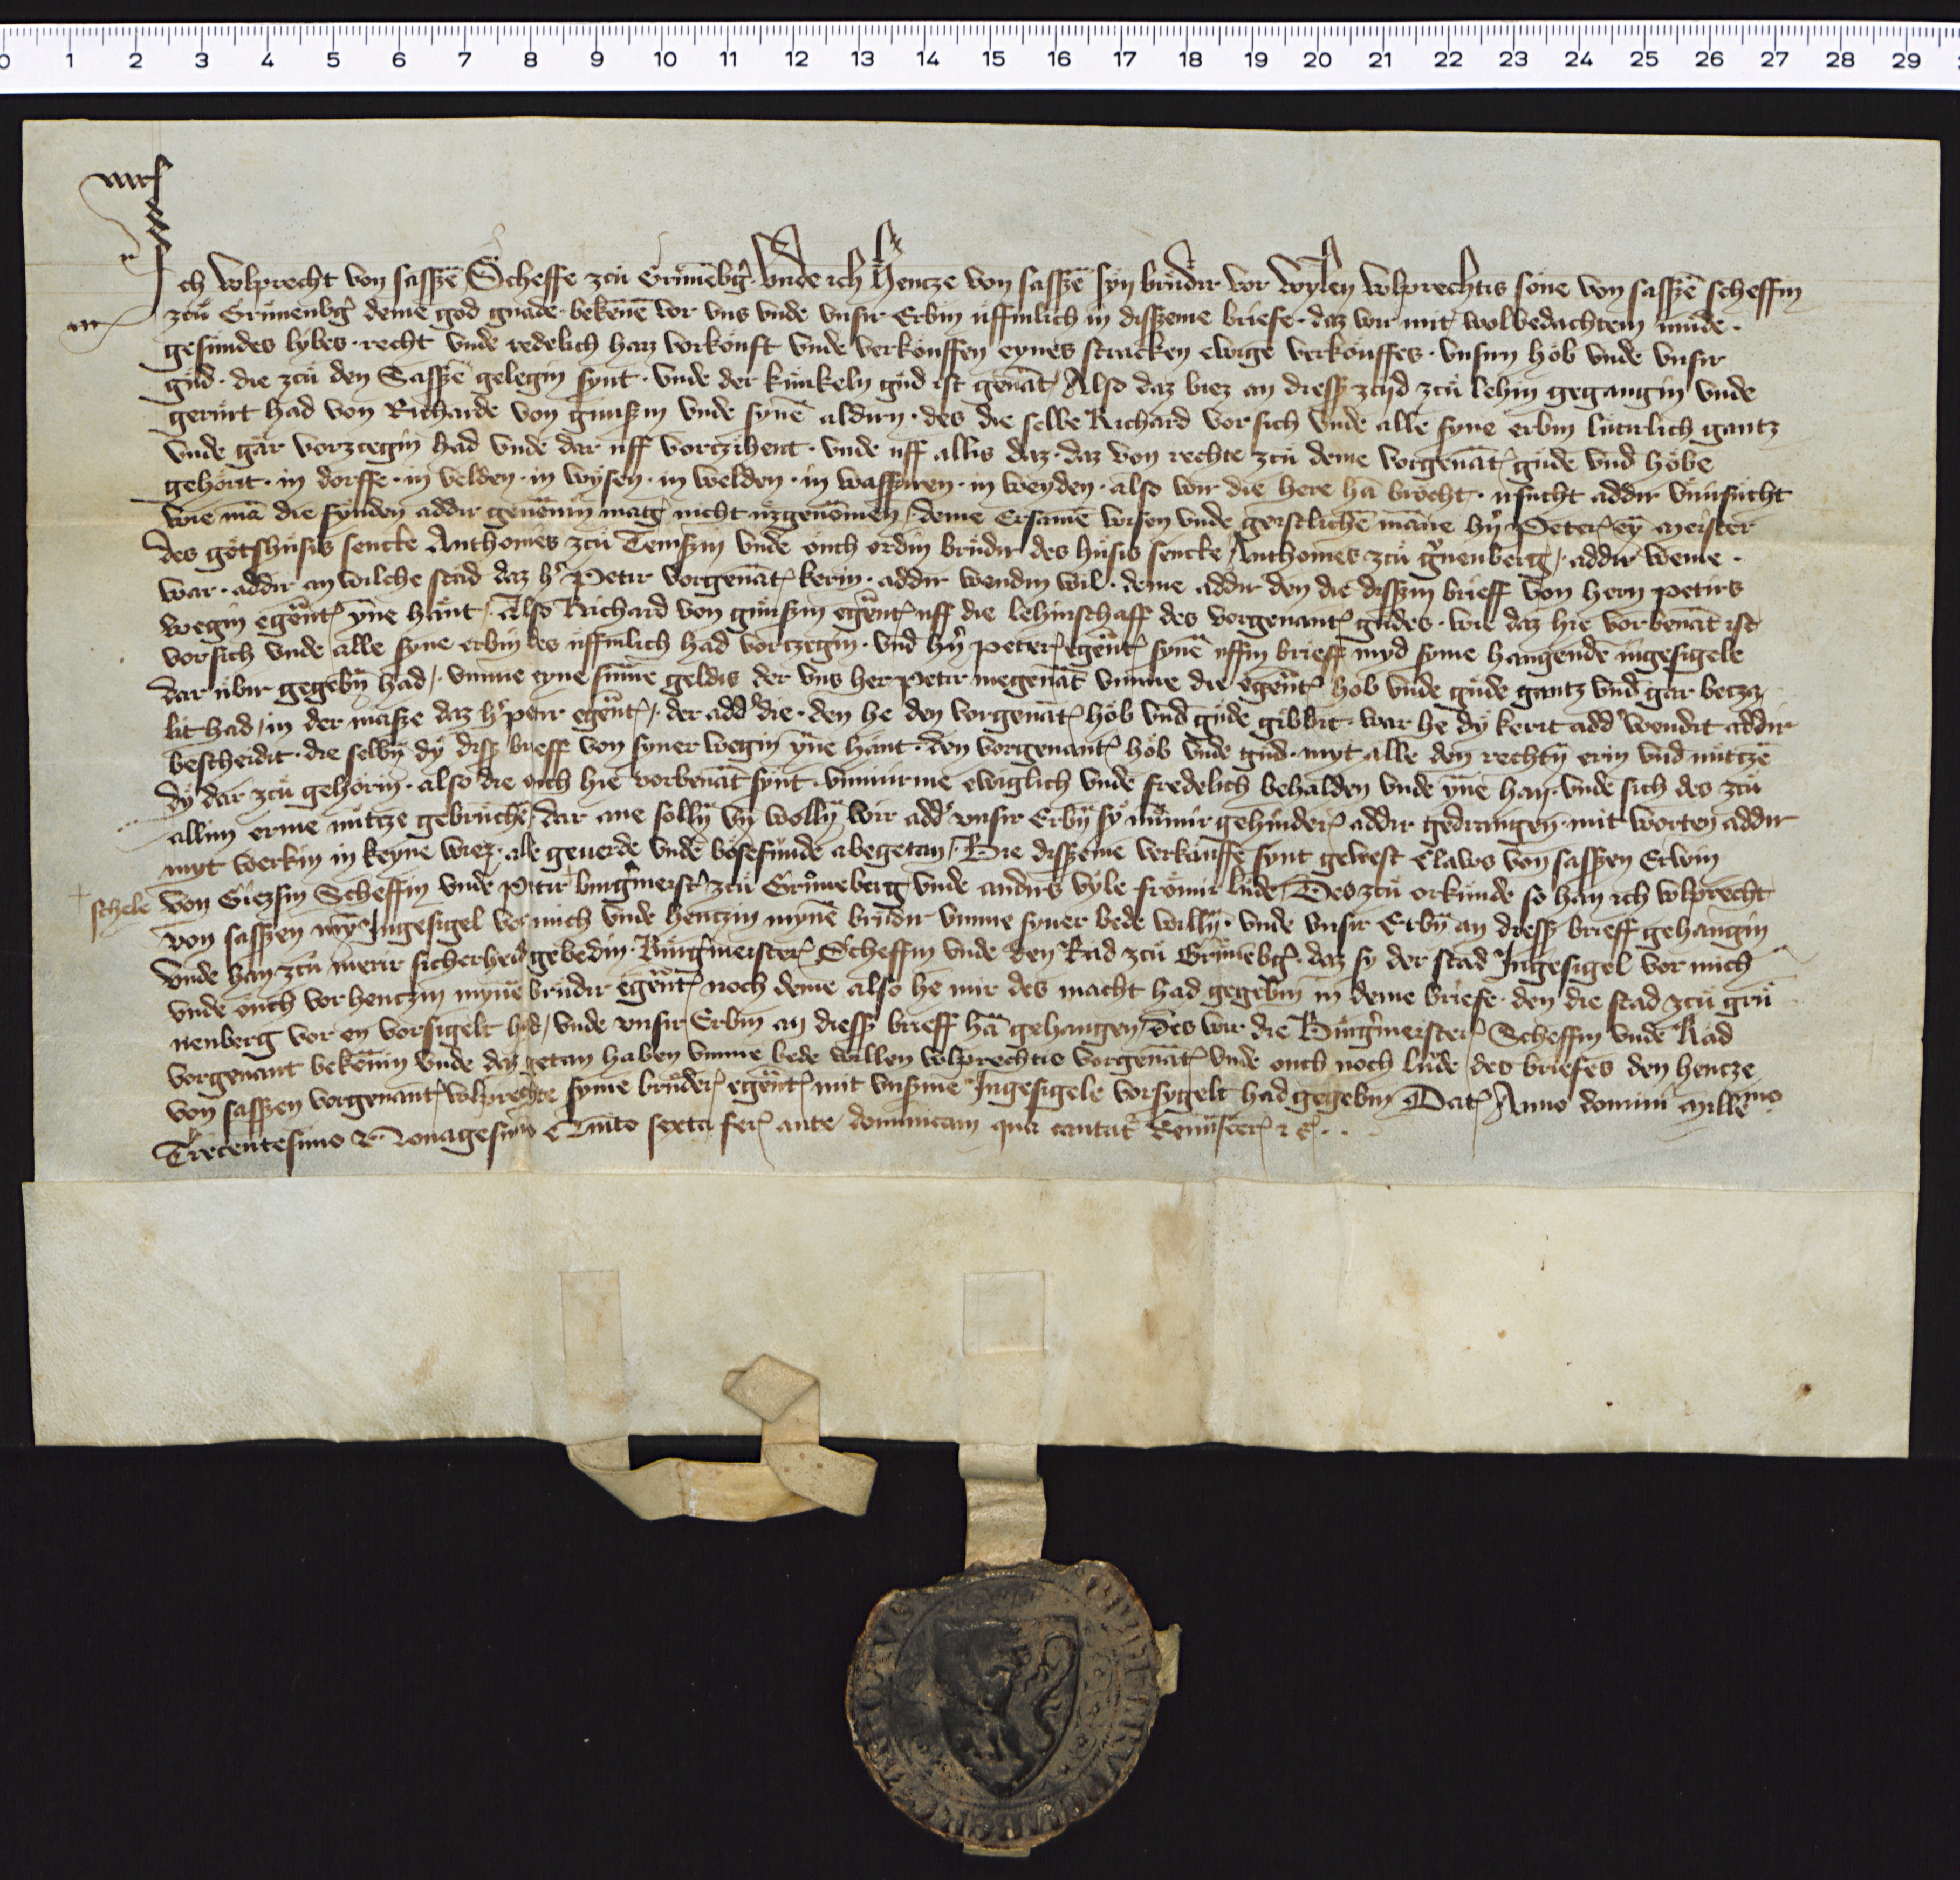 0 1 2 3 4 5 6 7 8 9 10 11 12 13 14 15 16 17 18 19 20 21 22 23 24 25 26 27 28 29
Ich Volprecht von sasszē Scheffe zcü Grünēbg̉ vnde ich Hencze von sasszē syn brüdir vor wylen volprechtis söne von sasszē scheffin
zcü Grünenbg̉ deme god gnade bekēnē vor vns vnde vnsir Erbin uffinlich in disszeme briefe · daz wir mit wolbedachtem müde ·
gesündes lybes · recht vnde redelich han vorköuft vnde verköuffen eynes stracken ewige verköuffes · vnsirn höb vnde vnsir
güd · die zcü den Sasszē gelegin synt · vnde der künkeln güd ist genāt / Also daz biez an diesse zcyd zcü lehin gegangin vnde
gerürt had von Richarde von günszin vnde synē aldirn · des die selbe Richard vor sich vnde alle syne erbin lüterlich gantz
vnde gar vorzcegin had vnde dar uff vortzihent · vnde uff allis daz · daz von rechte zcü deme vorgenāt güde vnd höbe
gehörit · in dorffe · in velden · in wysen · in welden · in wassziren · in weyden · also wir die here hā brocht · irsücht addir vnirsücht
wie mā die fynden addir genēnin mag nicht uzgenōmen / deme Ersamē wisen vnde geistlichē māne hn̉ Peter ey meister
des gotshüsis sencte Anthonies zcü Temszin vnde öuch ordin brüdir des hüsis sencte Anthonies zcü g̉nenberg / · addir weme ·
war · addir an wilche stad daz h̉ Petir vorgenāt kerin · addir wendin wil · deme addir den die disszin brieff von hern petirs
wegin egēnt yne hant / Also Richard von günszin egēnt uff die lehinschaff des vorgenant güdes · wie daz hie vorbenāt ist
vor sich vnde alle syne erbin des uffinlich had vortzegin · vnd hn̉ peter egēnt synē uffin brieff myd syme hangendē ingesigele
dar übir gegebin had / · vmme eyne süme geldis der vns her petir megenāt vmme die egēnt höb vnde güde gantz vnd gar betza
lit had / in der masze daz h̉ petir egēnt / · der add̉ die · den he den vorgenāt höb vnd güde gibbit · war he dy kerit add̉ wendit addir
bescheidit · die selbin dy diss brieff von syner wegin yne hant · den vorgenant höb vnde güd · myt alle den rechtin erin vnd nützē
dy dar zcü gehörin · also die öich hie vorbenāt synt · vmmirme ewiglich vnde fredelich behalden vnde yne han · vnde sich des zcü
allim erme nützze gebrüchē / dar ane sollin vn wollin wir add̉ vnsir Erbin sy nümir gehinder addir gedrangen · mit worten addir
myt werkin in keyne wiez · alle geuerde vnde bösefünde abegetan / Bie disszeme verkäuffe synt gewest Claws von sasszen Erwin
schele von Giezsin Scheffin vnde Petir burg̉meist̉ zcü Grüneberg vnde andirs vyle frömir lüde / Des zcü orkünde so han ich volprecht
von sasszen myn Ingesigel vor mich vnde henczin mynē brüdir vmme syner bede willin · vnde vnsir Erbin an diess brieff gehangin
vnde han zcü merir sicherheid gebedin · Burg̉meister Scheffin vnde den Rad zcü Grünēbg̉ · daz sy der stad Ingesigel vor mich
vnde öuch vor henczin mynē brüdir egēnt noch deme also he mir des macht had gegebin in deme briefe · den die stad zcü grü
nenberg vor en vorsigelt had / vnde vnsir Erbin an diess brieff hā gehangen / des wir die Burg̉meister Scheffin vnde Rad
vorgenant bekēnin vnde daz getan haben vmme bede willen volprechtis vorgenāt vnde ouch noch lüde des briefes den hencze
von sasszen vorgenant volprechte syme brüder egēnt mit vnszme Ingesigele vorsygelt had gegebin Dat Anno domini Millemo
Trecentesimo Nonagesimo Quīto sexta fer ante dominicam qua cantat̉ Reminiscer ...